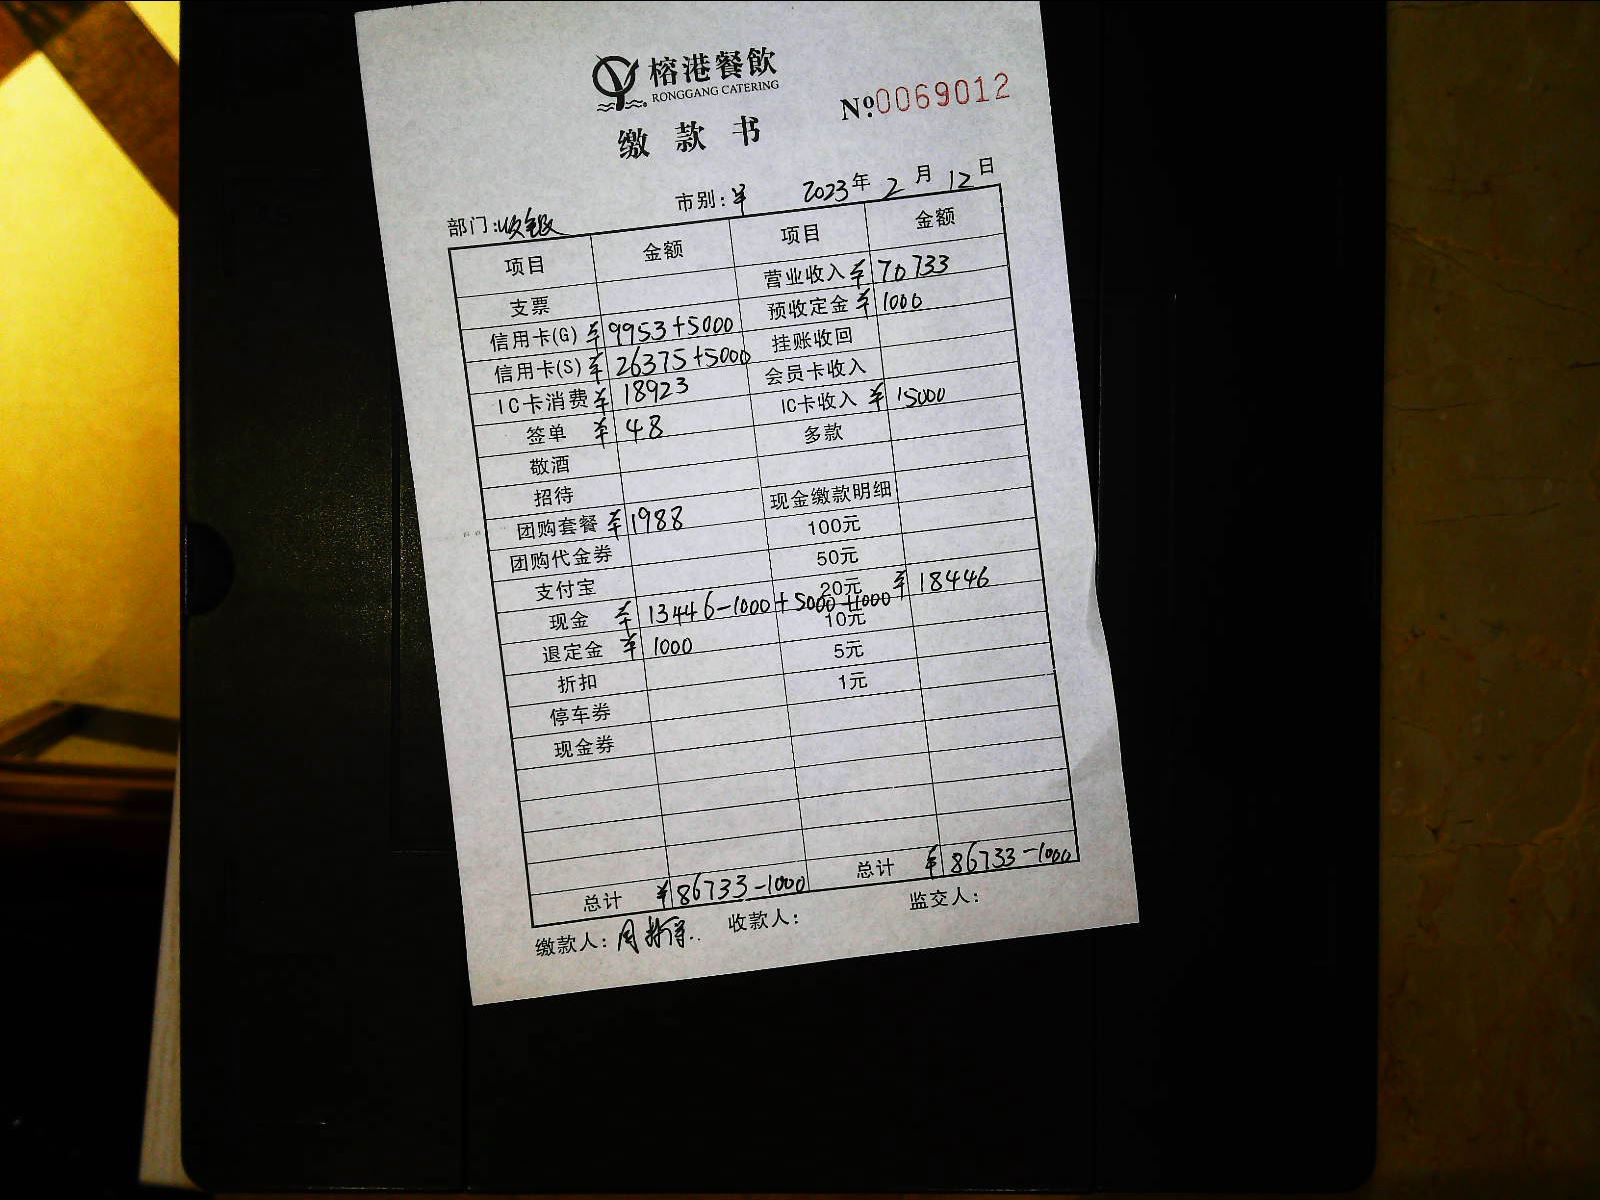 榕港餐飲
RONGGANG CATERING
缴款书
№0069012
部门:收银 市别: 2023年2月12日
项目 金额 项目 金额
支票 营业收入 ¥70733
信用卡(G) ¥9953+5000 预收定金 ¥1000
信用卡(S) ¥26375+5000 挂账收回
IC卡消费 ¥18923 会员卡收入
签单 ¥48 IC卡收入 ¥15000
敬酒 多款
招待
团购套餐 ¥1988 现金缴款明细
团购代金券 100元
支付宝 50元
现金 ¥13446-1000+5000+1000 20元 ¥18446
退定金 ¥1000 10元
折扣 5元
停车券 1元
现金券
总计 ¥86733-1000 总计 ¥86733-1000
缴款人: 收款人: 监交人: